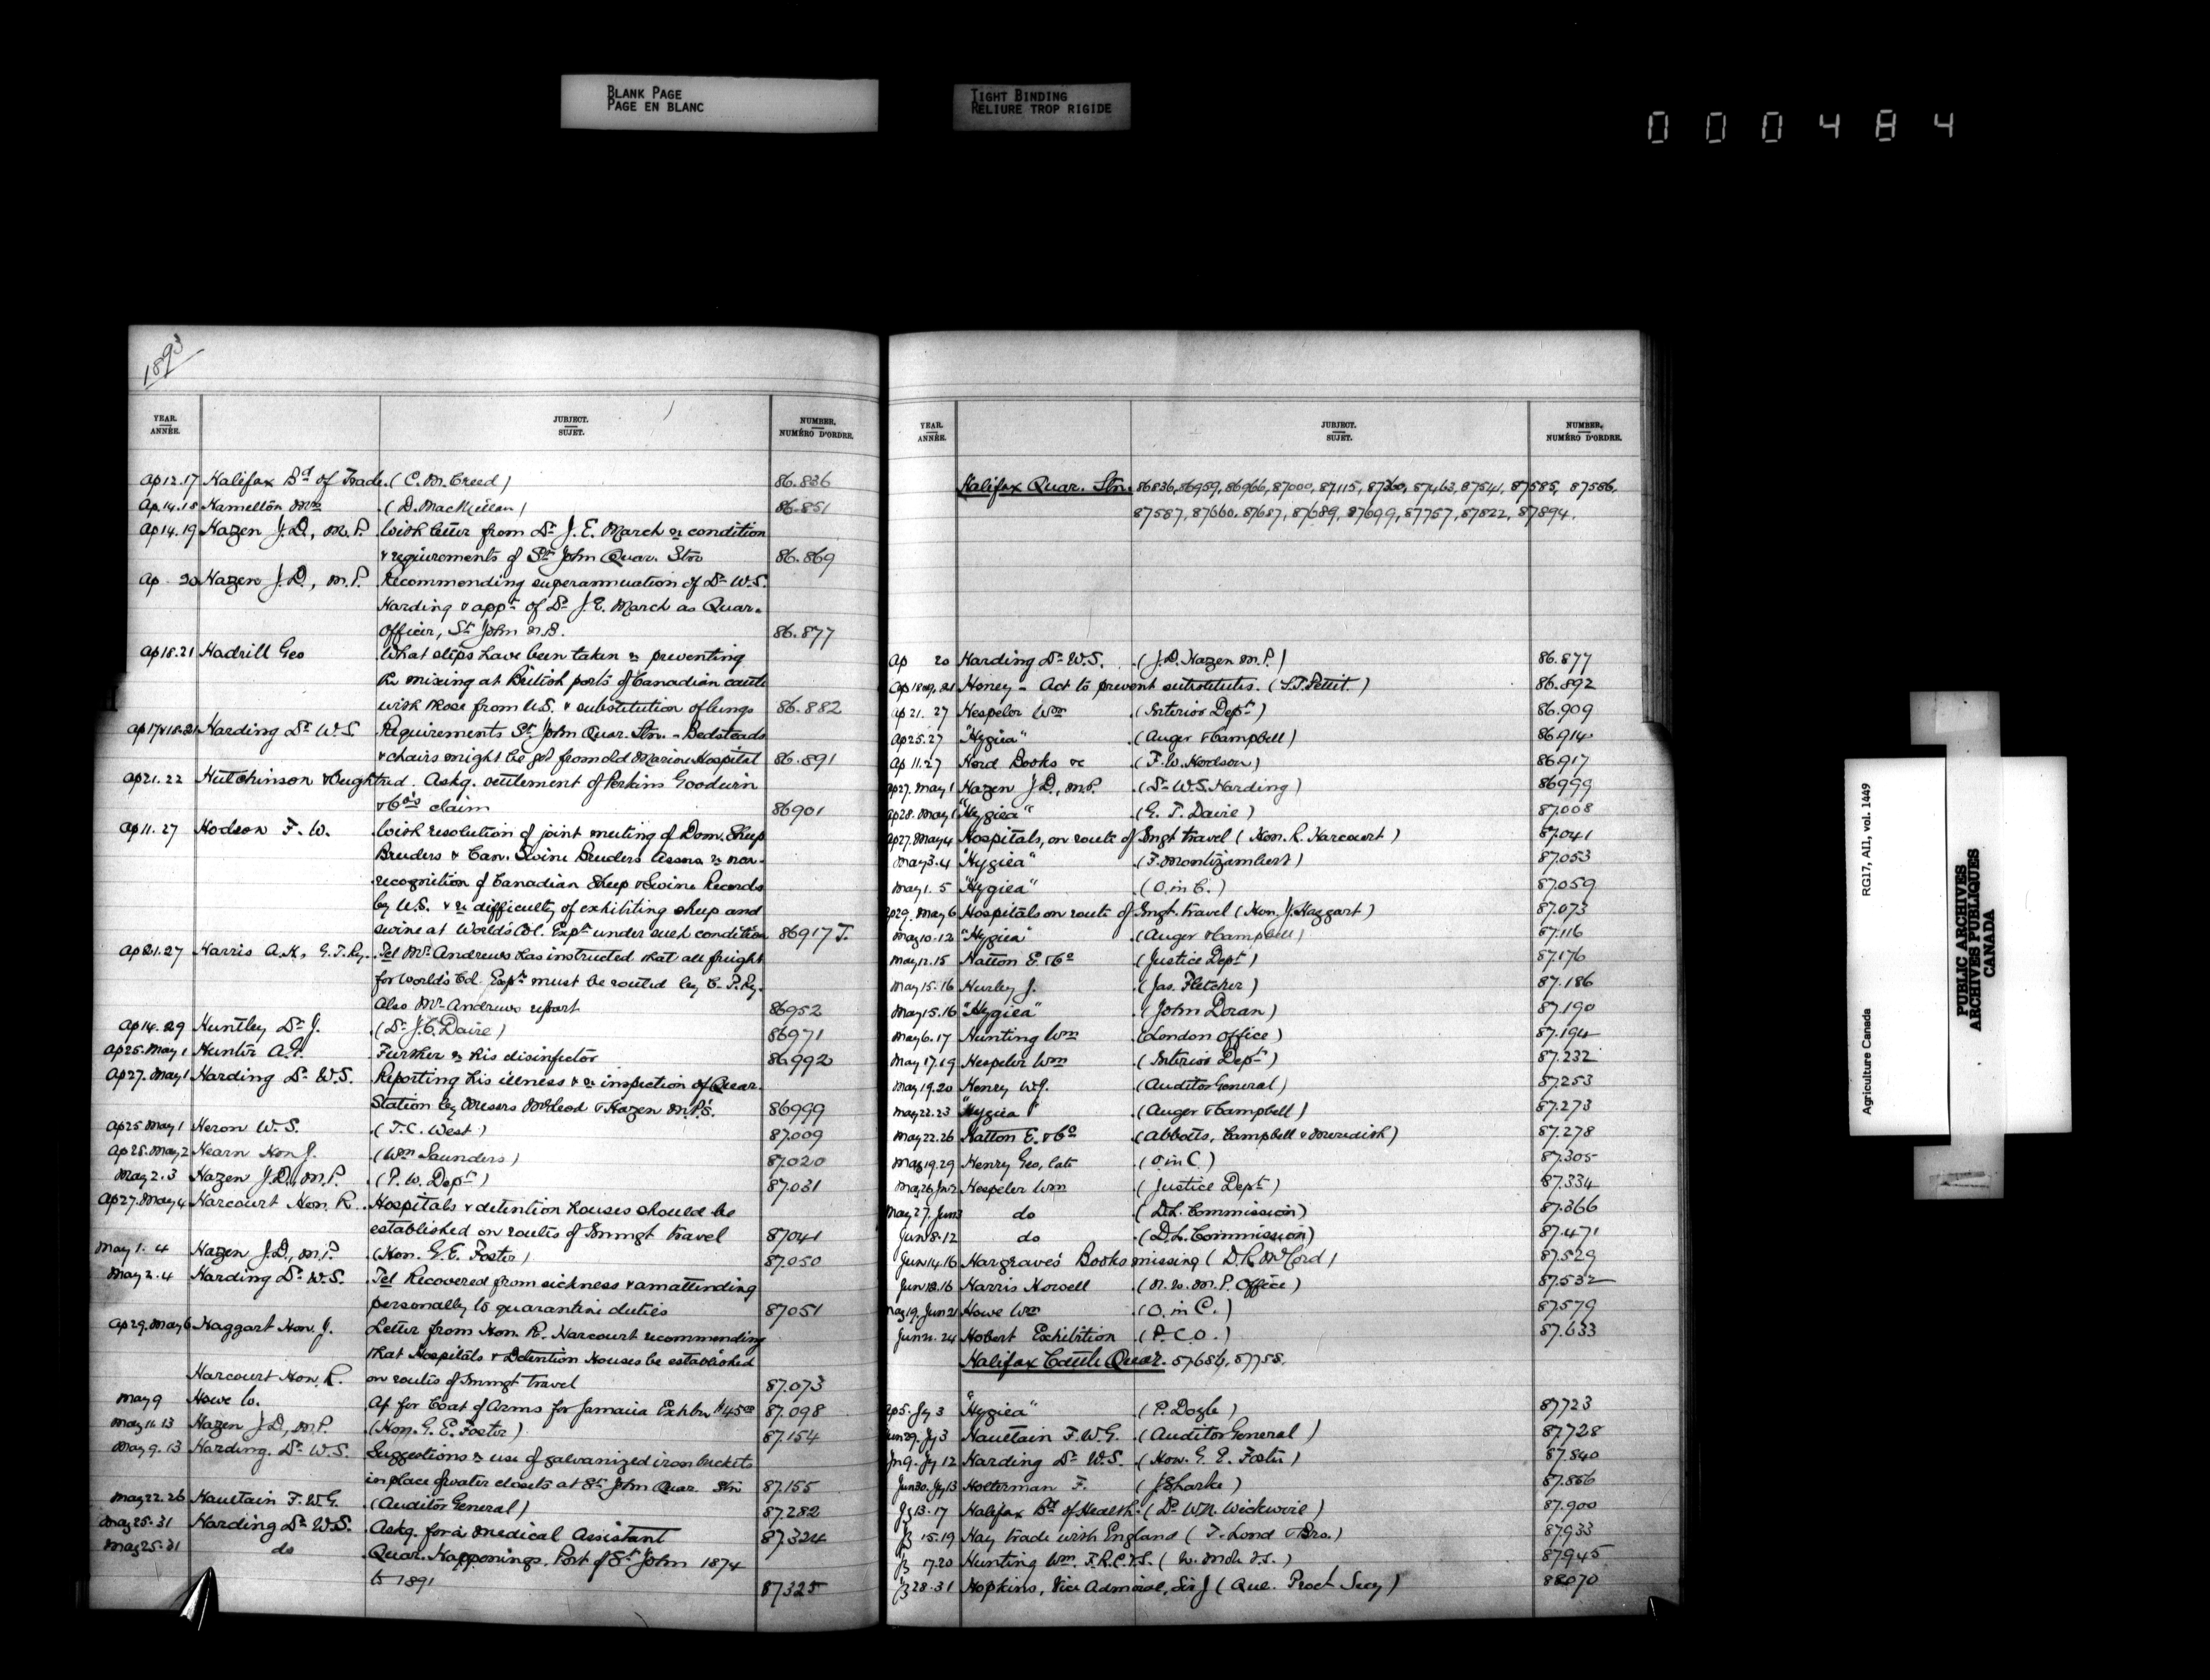 BLANK PAGE
PAGE EN BLANC
TIGHT BINDING
RELIURE TROP RIGIDE
000484
1893
YEAR. ANNÉE. SUBJECT. SUJET. NUMBER. NUMÉRO D'ORDRE.
Ap 12.17 Halifax Bd of Trade. (C. M. Creed) 86.836
Ap. 14.18 Hamelton Mrs (D. MacMillan) 86.851
Ap 14.19 Hazen J.D., M.P. With letter from Dr J. E. March re condition
& requirements of St John Quar. Stn 86.869
Ap 20 Hazen J.D., M.P. Recommending superannuation of Dr W.S.
Harding & appt of Dr J.E. March as Quar.
Officer, St John N.B. 86.877
Ap 18.21 Hadrill Geo What steps have been taken re preventing
the mixing at British ports of Canadian cattle
with those from U.S. & substitution of lungs 86.882
Ap 17&18.21 Harding Dr W.S. Requirements St John Quar. Stn. - Bedsteads
& chairs might be got from old Marine Hospital 86.891
Ap 21.22 Hutchinson & Oughtred. Askg. settlement of Perkins Goodwin
& Co's claim 86901
Ap 11.27 Hodson F. W. With resolution of joint meeting of Dom. Sheep
Breeders & Can. Swine Breeders Assns re non-
recognition of Canadian Sheep & Swine Records
by U.S. & re difficulty of exhibiting sheep and
swine at World's Col. Expn under such condition 86917 T.
Ap 21.27 Harris A.H., G.T.Ry. Tel Mr Andrews has instructed that all freight
for World's Col. Expn must be routed by C.P.Ry.
Also Mr Andrews report 86952
Ap 14.29 Huntley Dr J. (Dr J.C. Daire) 86971
Ap 25. May 1 Hunter A.F. Further re his disinfector 86992
Ap 27. May 1 Harding Dr W.S. Reporting his illness & re inspection of Quar.
Station by Messrs McLeod & Hazen M.P's. 86999
Ap 25 May 1 Heron W.S. (T.C. West) 87.009
Ap 28. May 2 Hearn Hon J. (Wm Saunders) 87.020
May 2.3 Hazen J.D., M.P. (P.W. Dept) 87.031
Ap 27. May 4 Harcourt Hon. R. Hospitals & detention houses should be
established on routes of Immgt travel 87041
May 1. 4 Hazen J.D., M.P. (Hon. G.E. Foster) 87.050
May 2.4 Harding Dr W.S. Tel Recovered from sickness & am attending
personally to quarantine duties 87051
Ap 29. May 6 Haggart Hon. J. Letter from Hon. R. Harcourt recommending
that Hospitals & Detention Houses be established
Harcourt Hon. R. on routes of Immgt travel 87.073
May 9 Howe W. Ap for Coat of Arms for Jamaica Exhbn $45.00 87.098
May 11.13 Hazen J.D., M.P. (Hon. G.E. Foster) 87.154
May 9.13 Harding. Dr W.S. Suggestions re use of galvanized iron buckets
in place of water closets at St John Quar. Stn 87.155
May 22.26 Haultain F.W.G. (Auditor General) 87.282
May 25.31 Harding Dr W.S. Askg. for a medical Assistant 87.324
May 25.31 do Quar. Happenings. Port of St John 1874
to 1891 87325
YEAR. ANNÉE. SUBJECT. SUJET. NUMBER. NUMÉRO D'ORDRE.
Halifax Quar. Stn. 86836, 86959, 86966, 87000, 87115, 87360, 87463, 87541, 87585, 87586,
87587, 87660, 87687, 87689, 87699, 87757, 87822, 87894.
Ap 20 Harding Dr W.S. (J.D. Hazen M.P.) 86.877
Ap 18&19.21 Honey - Act to prevent substitutes. (S.T. Pettit.) 86.892
Ap 21. 27 Hespeler Wm (Interior Dept) 86.909
Ap 25.27 "Hygiea" (Auger & Campbell) 86.914
Ap 11.27 Herd Books &c (F.W. Hodson) 86.917
Ap 27. May 1 Hazen J.D., M.P. (Dr W.S. Harding) 86999
Ap 28. May 1 "Hygiea" (G. T. Davie) 87.008
Ap 27. May 4 Hospitals, on route of Imgt travel (Hon. R. Harcourt) 87.041
May 3.4 "Hygiea" (F. Montizambert) 87.053
May 1. 5 "Hygiea" (O. in C.) 87.059
Ap 29. May 6 Hospitals on route of Imgt. travel (Hon. J. Haggart) 87.073
May 10.12 "Hygiea" (Auger & Campbell) 87.116
May 12.15 Hatton E. & Co (Justice Dept) 87.176
May 15.16 Hurley J. (Jas. Fletcher) 87.186
May 15.16 "Hygiea" (John Doran) 87.190
May 6.17 Hunting Wm (London Office) 87.194
May 17.19 Hespeler Wm (Interior Dept) 87.232
May 19.20 Henry W.J. (Auditor General) 87.253
May 22.23 "Hygiea" (Auger & Campbell) 87.273
May 22.26 Hatton E. & Co (Abbotts, Campbell & Meredith) 87.278
May 19.29 Henry Geo, late (O in C.) 87.305
May 26. Jun 2 Hespeler Wm (Justice Dept) 87.334
May 27. Jun 3 do (D.L. Commission) 87.366
Jun 8.12 do (D.L. Commission) 87.471
Jun 14.16 Hargrave's Books missing (D.R. McCord) 87.529
Jun 12.16 Harris Howell (N.W.M.P. Office) 87.532
May 19. Jun 21 Howe Wm (O. in C.) 87.579
Jun 21. 24 Hobart Exhibition (P.C.O.) 87.633
Halifax Cattle Quar. 87686, 87755.
Ap 5. Jy 3 "Hygiea" (P. Doyle) 87723
Jun 29. Jy 3 Haultain F.W.G. (Auditor General) 87.728
Jn 9. Jy 12 Harding Dr W.S. (Hon. G. E. Foster) 87.840
Jun 30. Jy 13 Holterman F. (J Sharke) 87.866
Jy 13.17 Halifax Bd of Health. (Dr W.N. Wickwire) 87.900
Jy 15.19 Hay trade with England (T. Lond & Bro.) 87933
Jy 17.20 Hunting Wm. F.R.C.V.S. 87945
Jy 28.31 Hopkins, Vice Admiral, Sir J (Que. Proct Secy) 88070
Agriculture Canada RG17, AII, vol. 1449
PUBLIC ARCHIVES
ARCHIVES PUBLIQUES
CANADA